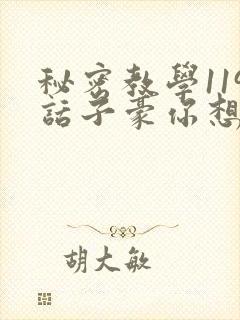 秘密教學119
話子豪你想
胡大敏